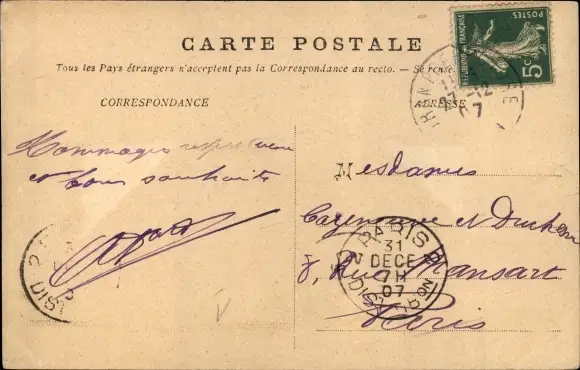 CARTE POSTALE
Tous les Pays étrangers n'acceptent pas la Correspondance au recto. — Se rense
CORRESPONDANCE
ADRESSE
Hommages respectueux
et bons souhaits
Mesdames
et Duchem
8, Rue Mansart
Paris
POSTES
REPUBLIQUE FRANÇAISE
5c
12
07
PARIS
31
DECE
7H
07
DISTRIBON
DIS